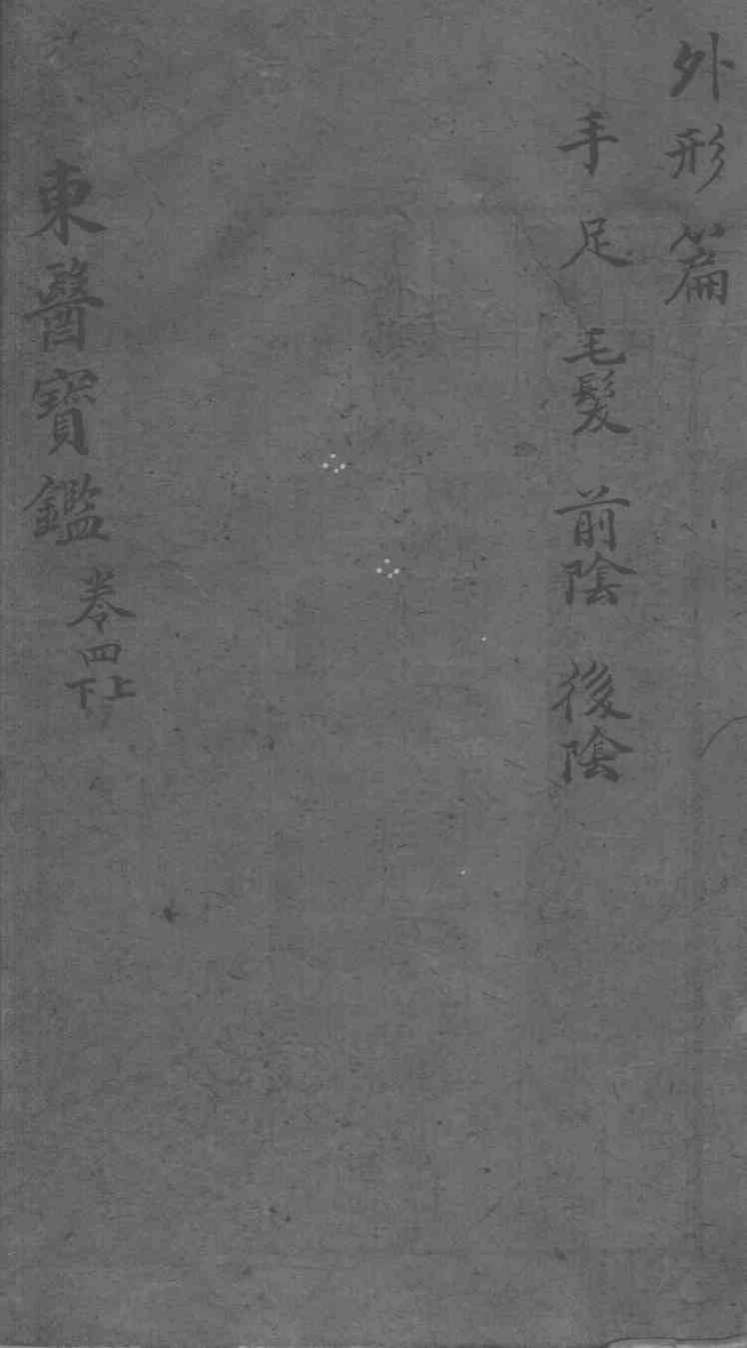 外形篇
手 足 毛髮 前陰 後陰
東醫寶鑑 卷四上下